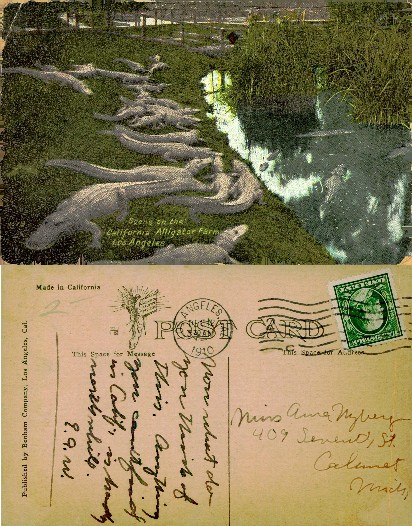 Scene on the
California Alligator Farm
Los Angeles
Made in California
POST CARD
This Space for Message
This Space for Address
ANGELES,
1910
Published by Benham Company, Los Angeles, Cal.
Now what do
you think of
this. Anything
in Calif. is hardly
Miss Anna Nyberg
409 Seventh St.
Calumet
Mich